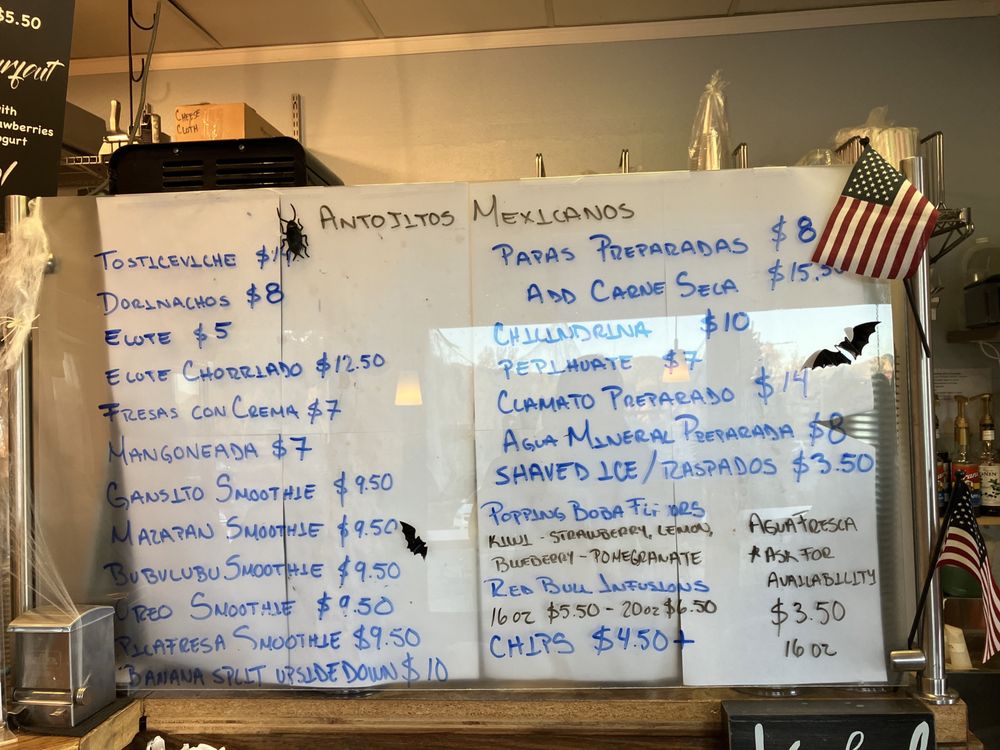 $5.50
with
CHEESE
CLOTH
ANTOJITOS MEXICANOS
TOSTICEVICHE
DORINACHOS $8
ELOTE $5
ELOTE CHORRIADO $12.50
FRESAS CON CREMA $7
MANGONEADA $7
GANSITO SMOOTHIE $9.50
MAZAPAN SMOOTHIE $9.50
BUBULUBU SMOOTHIE $9.50
OREO SMOOTHIE $9.50
PICAFRESA SMOOTHIE $9.50
BANANA SPLIT UPSIDE DOWN $10
PAPAS PREPARADAS $8
ADD CARNE SECA $15.50
CHILINDRINA $10
PEPIHUATE $7
CLAMATO PREPARADO $14
AGUA MINERAL PREPARADA $8
SHAVED ICE/RASPADOS $3.50
POPPING BOBA
KIWI - STRAWBERRY, LEMON,
BLUEBERRY - POMEGRANATE
RED BULL INFUSIONS
16 OZ $5.50 - 20 OZ $6.50
CHIPS $4.50+
AGUA FRESCA
*ASK FOR
AVAILABILITY
$3.50
16 OZ